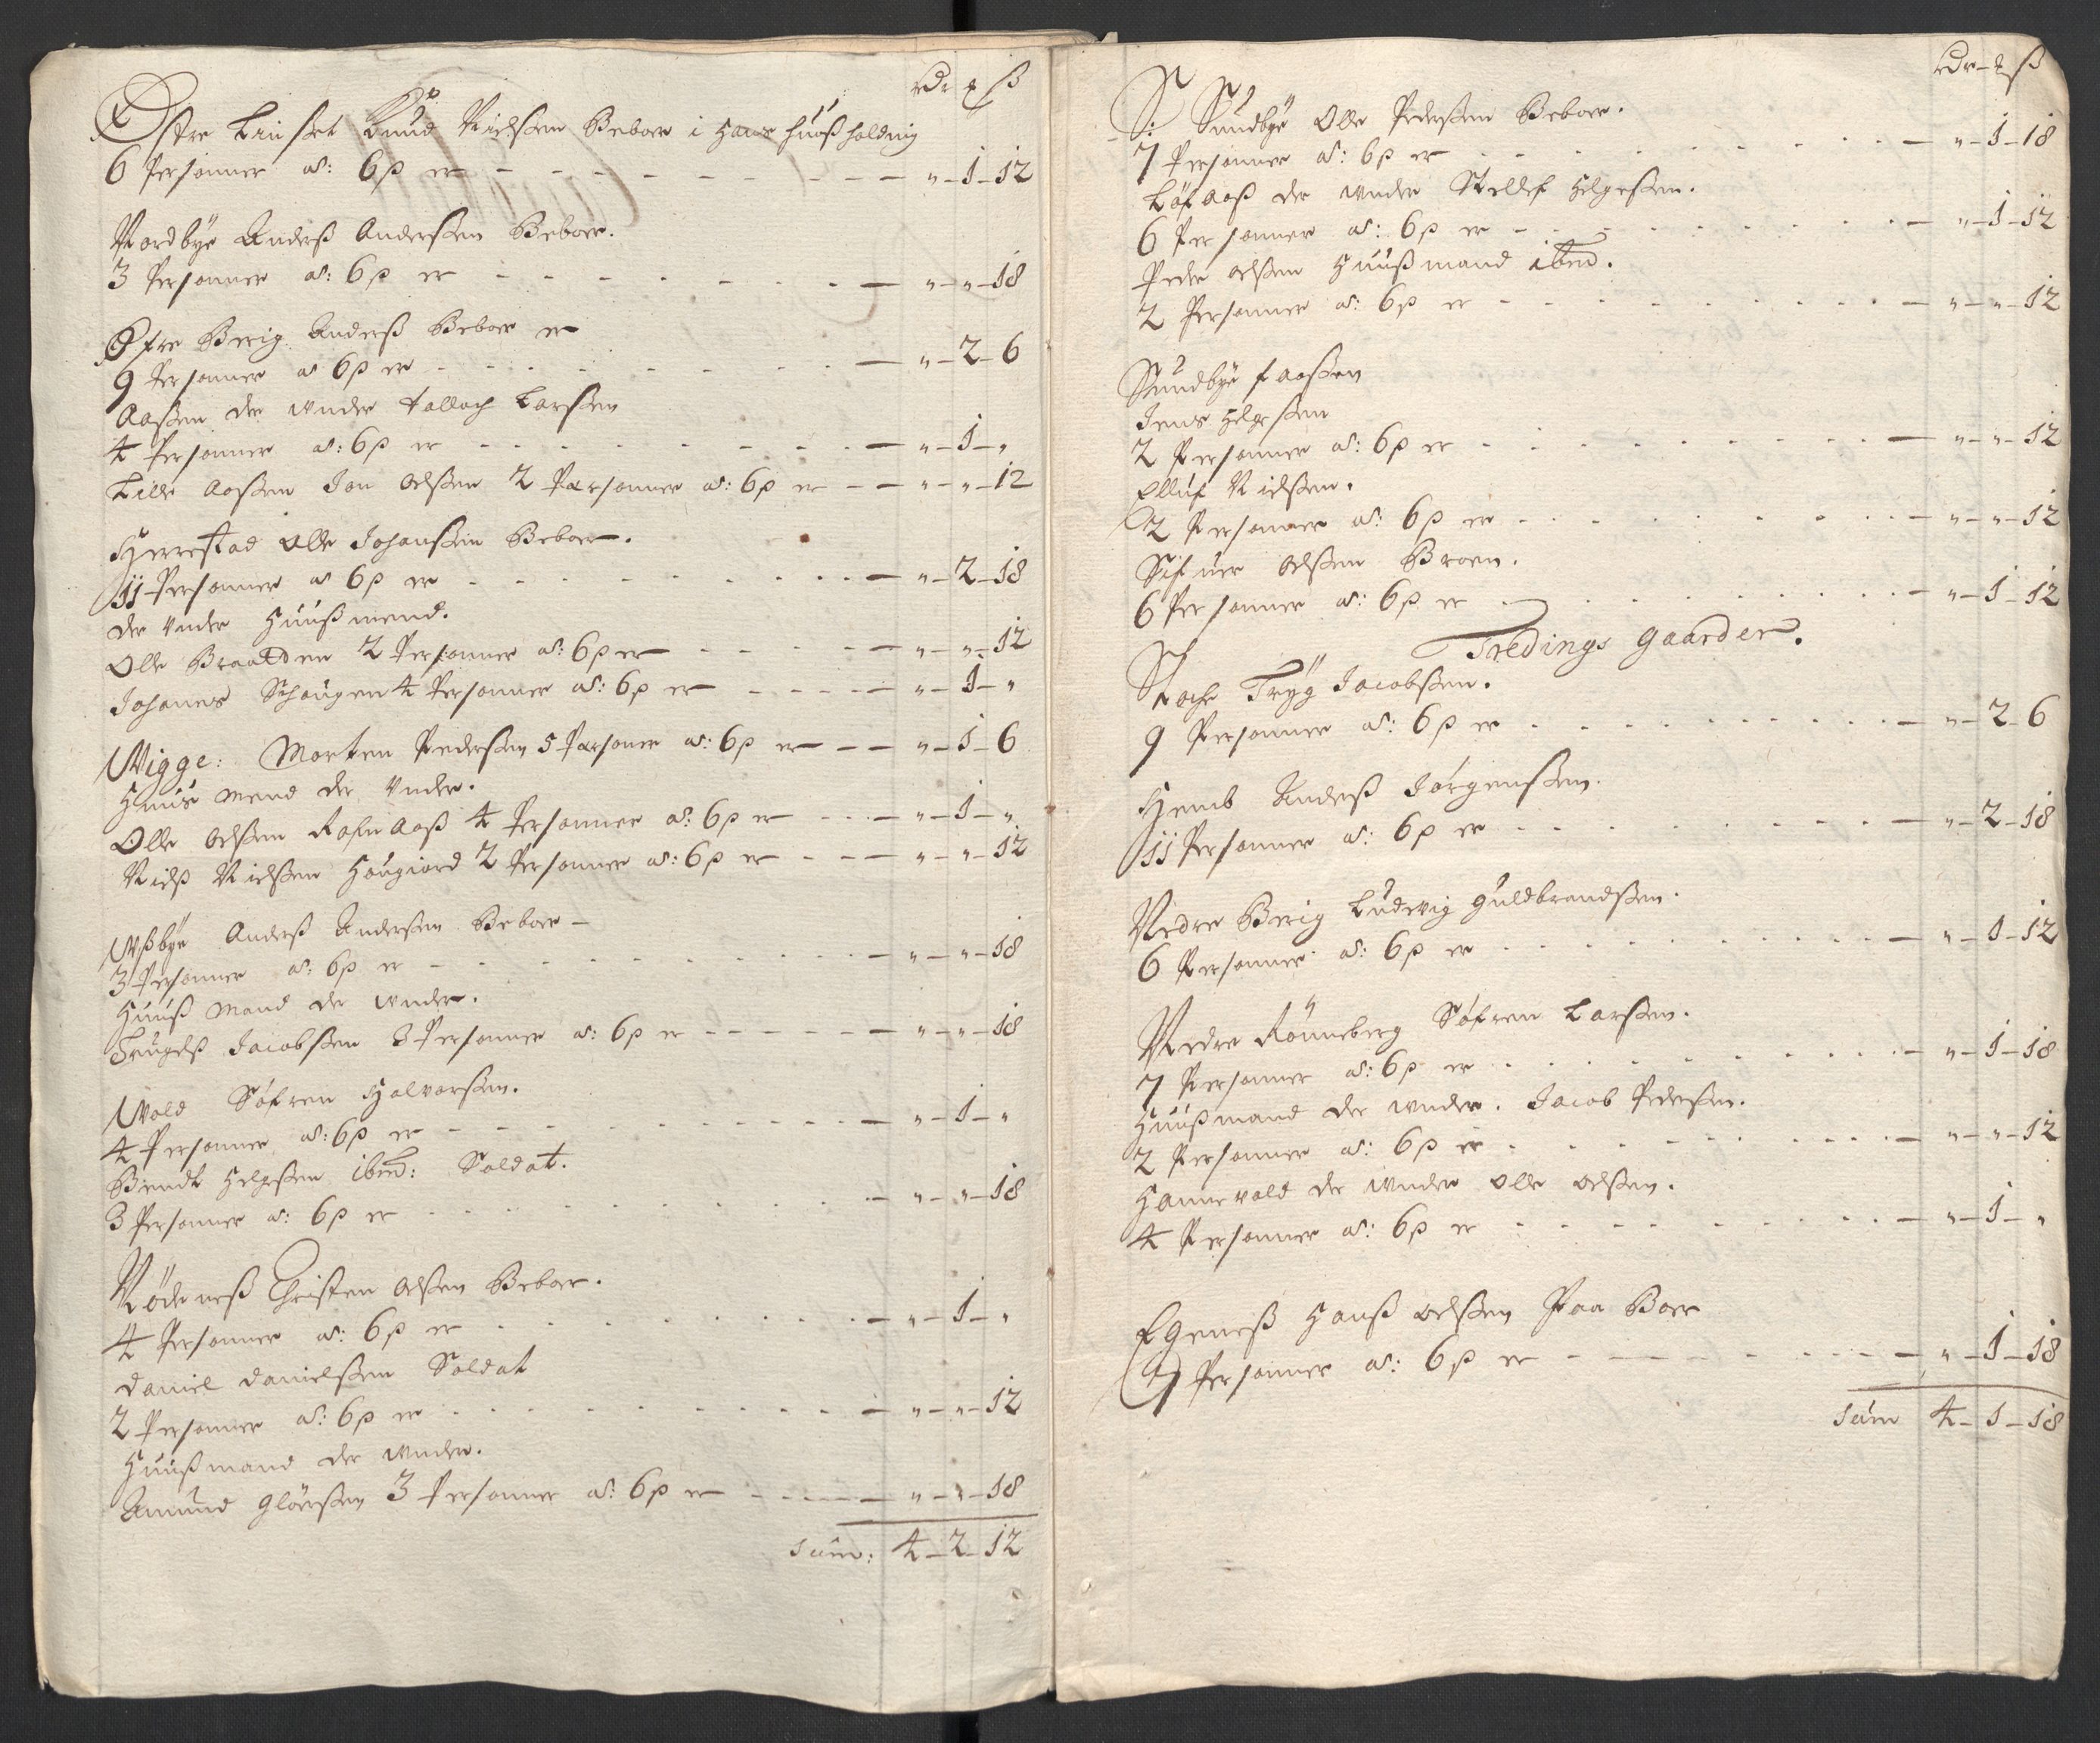 rdr ß
Østre Linset Knud Nielssen Beboer i Hans huußholding
6 Personner as: 6 ß er - - - - - - - - „ - 1 - 12
Nordbye Anderß Anderssen Beboer.
3 Personner as: 6 ß er - - - - - - - - „ - „ - 18
Øfre Berig Anderß Beboer er
9 Personner as 6 ß er - - - - - - - - „ - 2 - 6
Aassen der under Tollach Larssen
4 Personner as: 6 ß er - - - - - - - - „ - 1 - „
Lille Aassen Jon Olssen 2 Personner as: 6 ß er - - „ - „ - 12
Herrestad Olle Johanssen Beboer.
11 Personner as 6 ß er - - - - - - - - „ - 2 - 18
der under Huußmend.
Olle Braatden 2 Personner as: 6 ß er - - - - - „ - „ - 12
Johanes Schougen 4 Personner as: 6 ß er - - - - „ - 1 - „
Wigge: Morten Pederssen 5 Personer as: 6 ß er - - - „ - 1 - 6
Huus mend der under.
Olle Olssen Rafn Aaß 4 Personner as: 6 ß er - - - „ - 1 - „
Nielß Nielssen Hougiord 2 Personner as: 6 ß er - - - „ - „ - 12
Wßbye Anderß Anderssen Beboer -
3 Personner as: 6 ß er - - - - - - - - „ - „ - 18
Huuß Mand der under.
Trugelß Jacobssen 3 Personner as: 6 ß er - - - - - - „ - „ - 18
Wold Søfren Halvorssen.
4 Personner as: 6 ß er - - - - - - - - „ - 1 - „
Bendt Helgessen ibm: Soldat.
3 Personner as: 6 ß er - - - - - - - - „ - „ - 18
Nödeneß Christen Olssen Beboer.
4 Personner as: 6 ß er - - - - - - - - „ - 1 - „
Daniel Danielssen Soldat
2 Personner as: 6 ß er - - - - - - - - „ - „ - 12
Huußmand der under.
Amund Glörssen 3 Personner as: 6 ß er - - - - „ - „ - 18
Sum: 4 - 2 - 12
rdr - ß
S: Sundbye Olle Pederssen Beboer.
7 Personner as: 6 ß er - - - - - - - - „ - 1 - 18
Löfaaß der under Stellef Helgessen.
6 Personner as: 6 ß er - - - - - - - - „ - 1 - 12
Peder Olssen Huußmand ibm.
2 Personner as: 6 ß er - - - - - - - - „ - „ - 12
Sundbye f Aassen
Jens Helgessen
2 Personner as: 6 ß er - - - - - - - - „ - „ - 12
Elluf Nielssen.
2 Personner as: 6 ß er - - - - - - - - „ - „ - 12
Sifuer Olssen Broen.
6 Personner as: 6 ß er - - - - - - - - „ - 1 - 12
Tredings Gaarder.
Stache Tryg Jacobssen.
9 Personner as: 6 ß er - - - - - - - - „ - 2 - 6
Hemb Anderß Jörgenssen.
11 Personner as: 6 ß er - - - - - - - - „ - 2 - 18
Nedre Berig Ludevig Guldbrandssen.
6 Personner as: 6 ß er - - - - - - - - „ - 1 - 12
Nedre Rönneberg Söfren Larssen.
7 Personner as: 6 ß er - - - - - - - - „ - 1 - 18
Huußmand der under. Jacob Pederssen.
2 Personner as: 6 ß er - - - - - - - - „ - „ - 12
Hannevold der under Olle Olssen.
4 Personner as: 6 ß er - - - - - - - - „ - 1 - „
Egeneß Hanß Olssen Paa Boer
7 Personner as: 6 ß er - - - - - - - - „ - 1 - 18
Sum 4 - 1 - 18